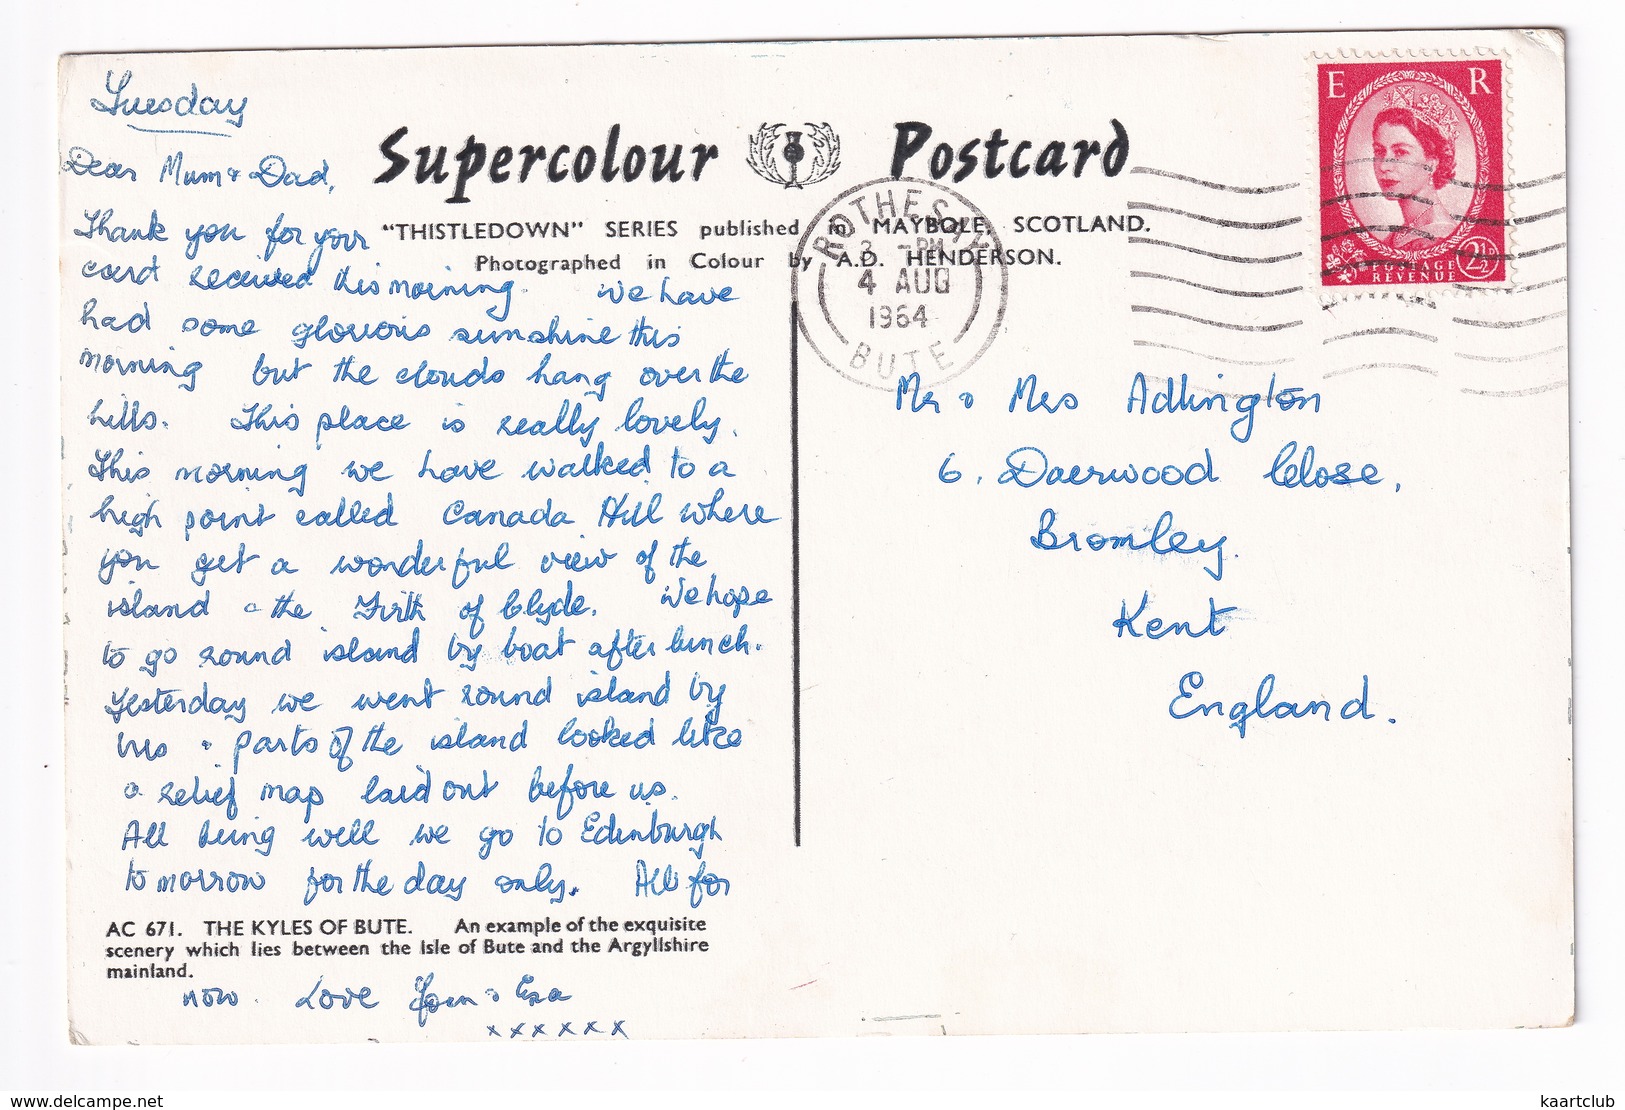 Tuesday
Dear Mum & Dad,
Supercolour Postcard
"THISTLEDOWN" SERIES published in MAYBOLE, SCOTLAND.
Photographed in Colour by A.D. HENDERSON.
Thank you for your
card received this morning. We have
had some glorious sunshine this
morning but the clouds hang over the
hills. This place is really lovely.
This morning we have walked to a
high point called Canada Hill where
you get a wonderful view of the
island & the Firth of Clyde. We hope
to go round island by boat after lunch.
Yesterday we went round island by
bus & parts of the island looked like
a relief map laid out before us.
All being well we go to Edinburgh
tomorrow for the day only. All for
AC 671. THE KYLES OF BUTE. An example of the exquisite
scenery which lies between the Isle of Bute and the Argyllshire
mainland.
now. Love &
xxxxxx
ROTHESAY
3 - PM
4 AUG
1964
BUTE
E R
POSTAGE
REVENUE
2½D
Mr & Mrs Adlington
6, Daerwood Close,
Bromley.
Kent
England.
delcampe.net
kaartclub